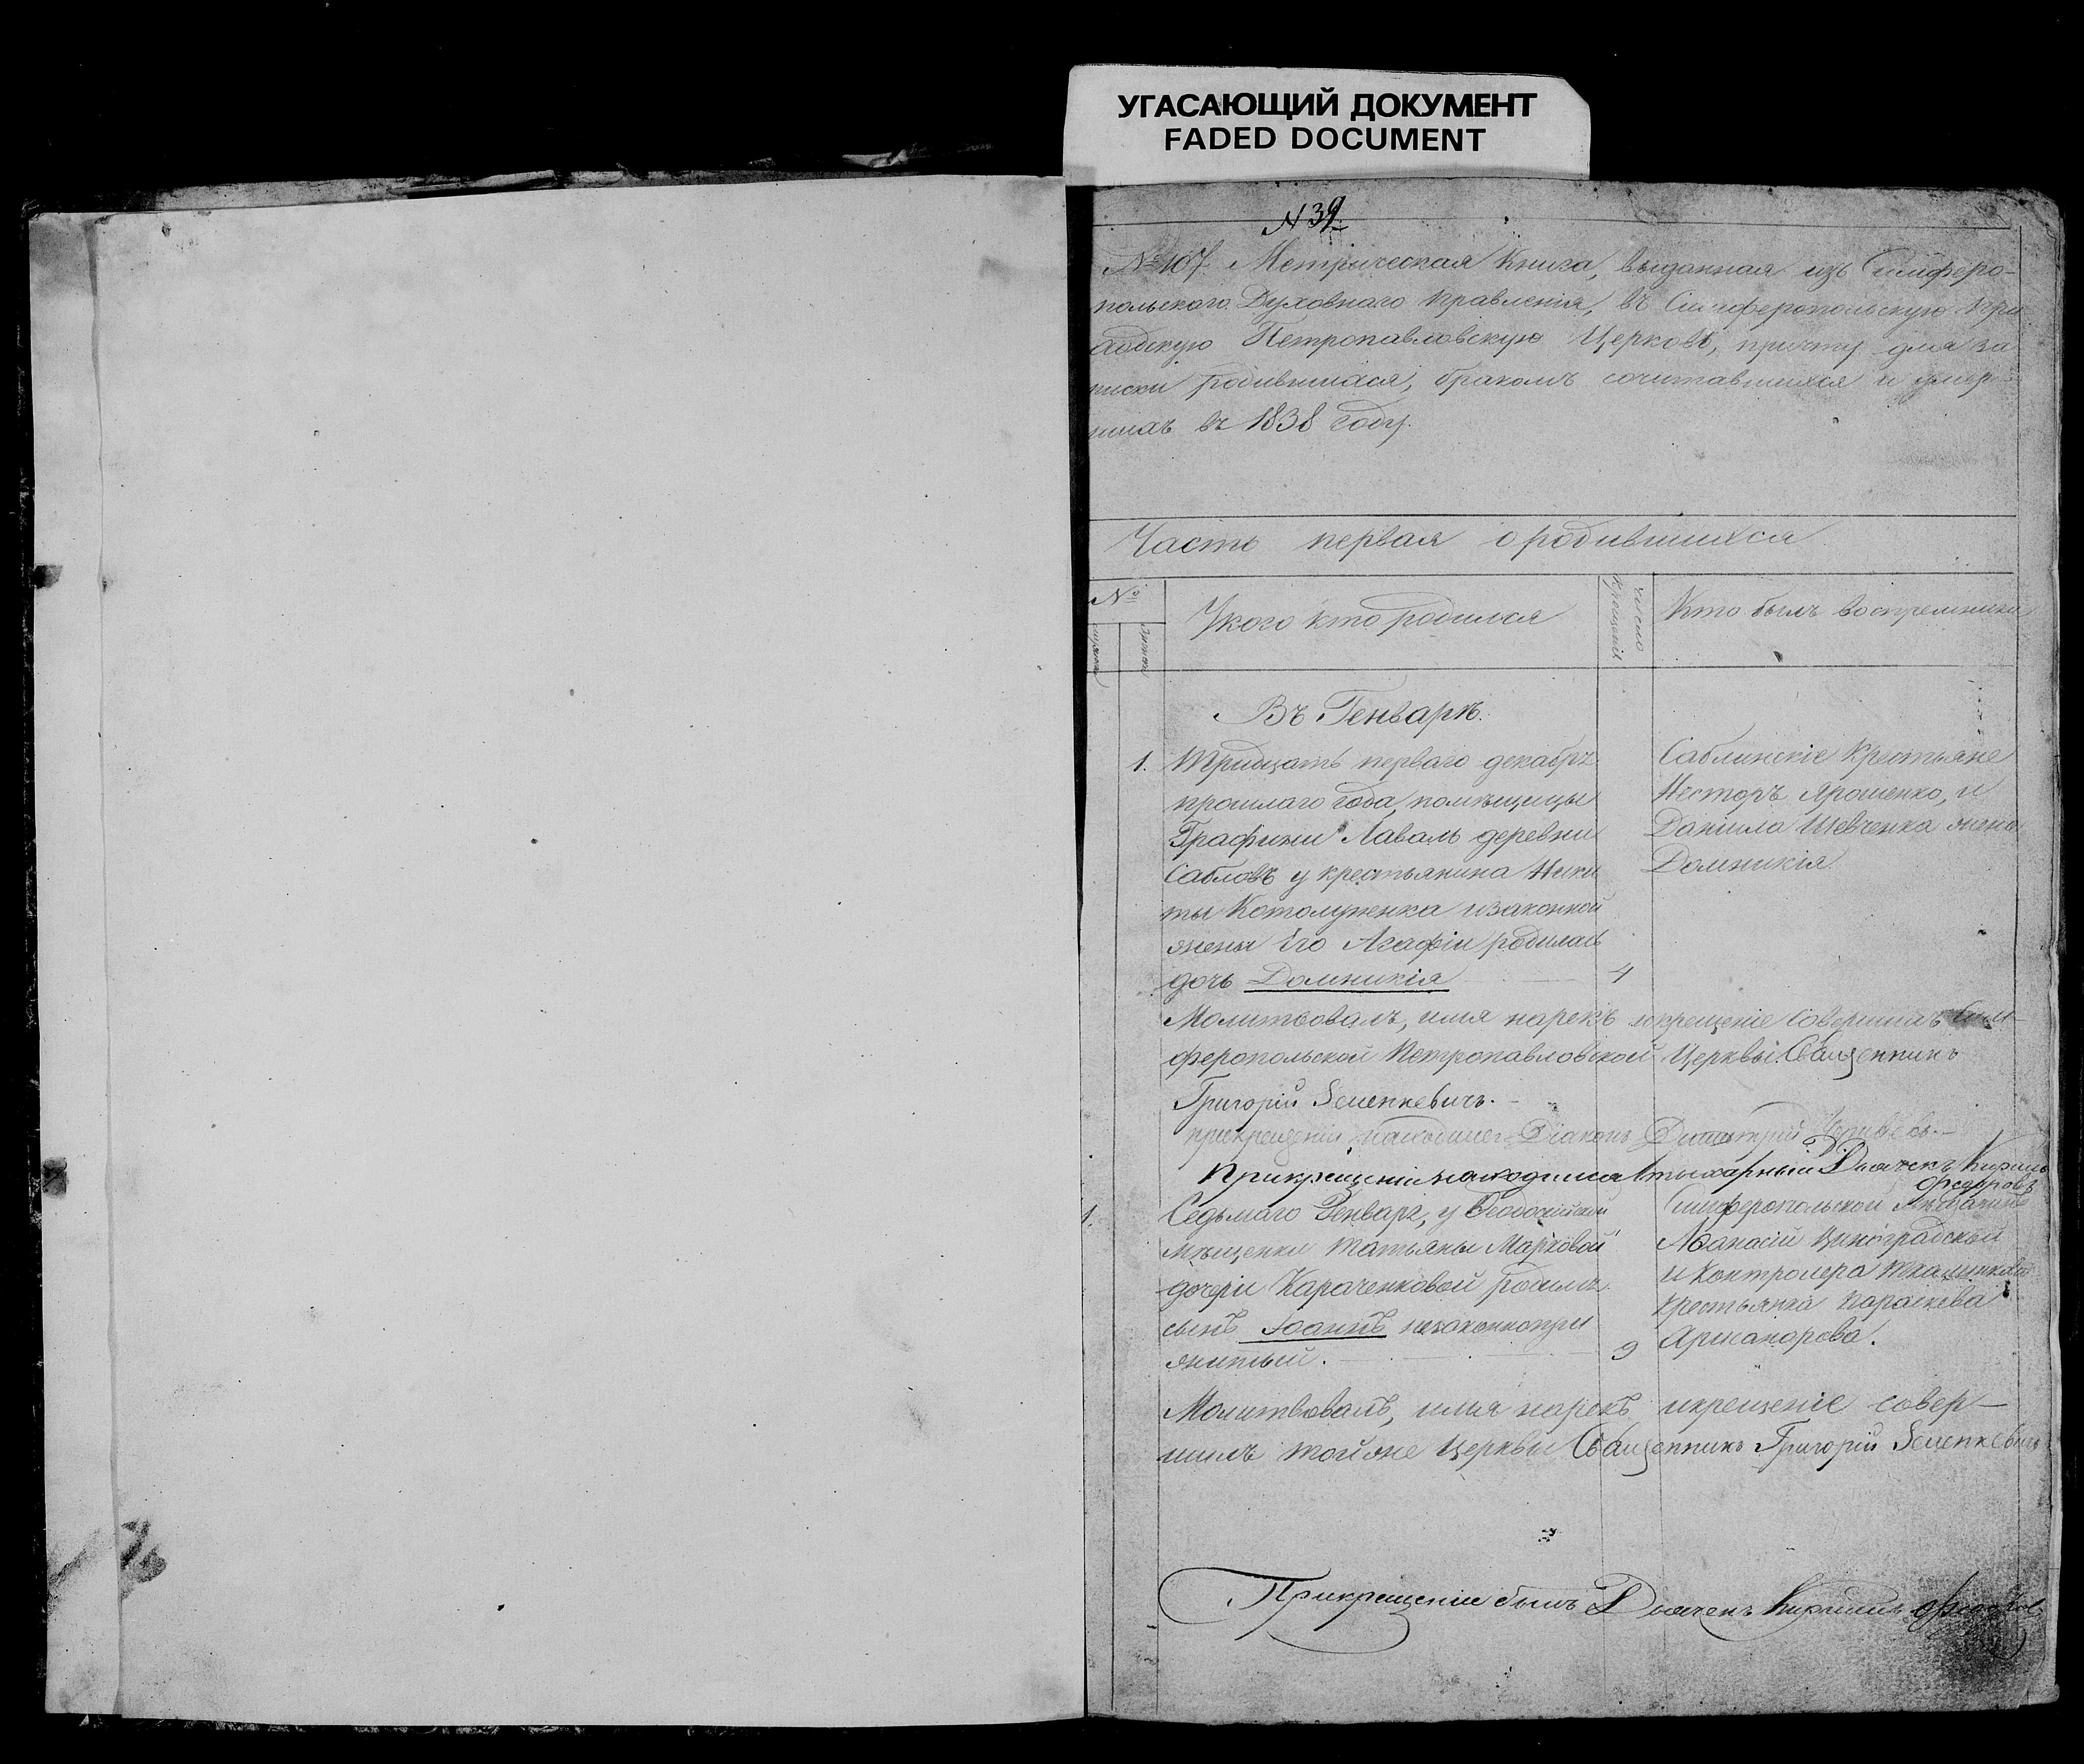 УГАСАЮЩИЙ ДОКУМЕНТ
FADED DOCUMENT
N 39.
№ 107. Метрическая Книга, выданная изъ Симферо-
польскаго Духовнаго Правленія, въ Симферопольскую При
ходскую Петропавловскую Церковь, причту для за
писки родившихся, бракомъ сочитавшихся и умер-
шихъ въ 1838 году.
Часть первая о родившихся
№
У кого кто родился
число
крещенія
Кто былъ воспремники
Въ Генварѣ.
1. Тридцать перваго декабря
прошлаго года, помѣщицы
Графини Лаваль деревни
Сабловъ у крестьянина Ники
ты Котолуженка и законной
жены Его Агафіи родилась
дочь Домникія
4
Саблинскіе Крестьяне
Несторъ Ярошенко, и
Данила Шевченка жена
Домникія
Молитвовалъ, имя нарекъ и крещеніе совершилъ Сим-
феропольской Петропавловской Церквы Священникъ
Григорій
при крещеніи находился Діаконъ Димитрій
При крещеніи находился Стихарный Дьячекъ Кирилъ
Федоровъ
1. Седьмаго Генваря, у Феодосійской
мѣщенки Татьяны Марковой
дочери Караченковой родился
сынъ Іоаннъ незаконнопри
житый.
9
Симферопольской
Афанасій
и Контролера
крестьянка Параскева
Молитвовалъ, имя нарекъ, и крещеніе совер-
шилъ той же Церквы Священникъ Григорій
При крещеніи былъ Дьячекъ Кирилъ Федоров